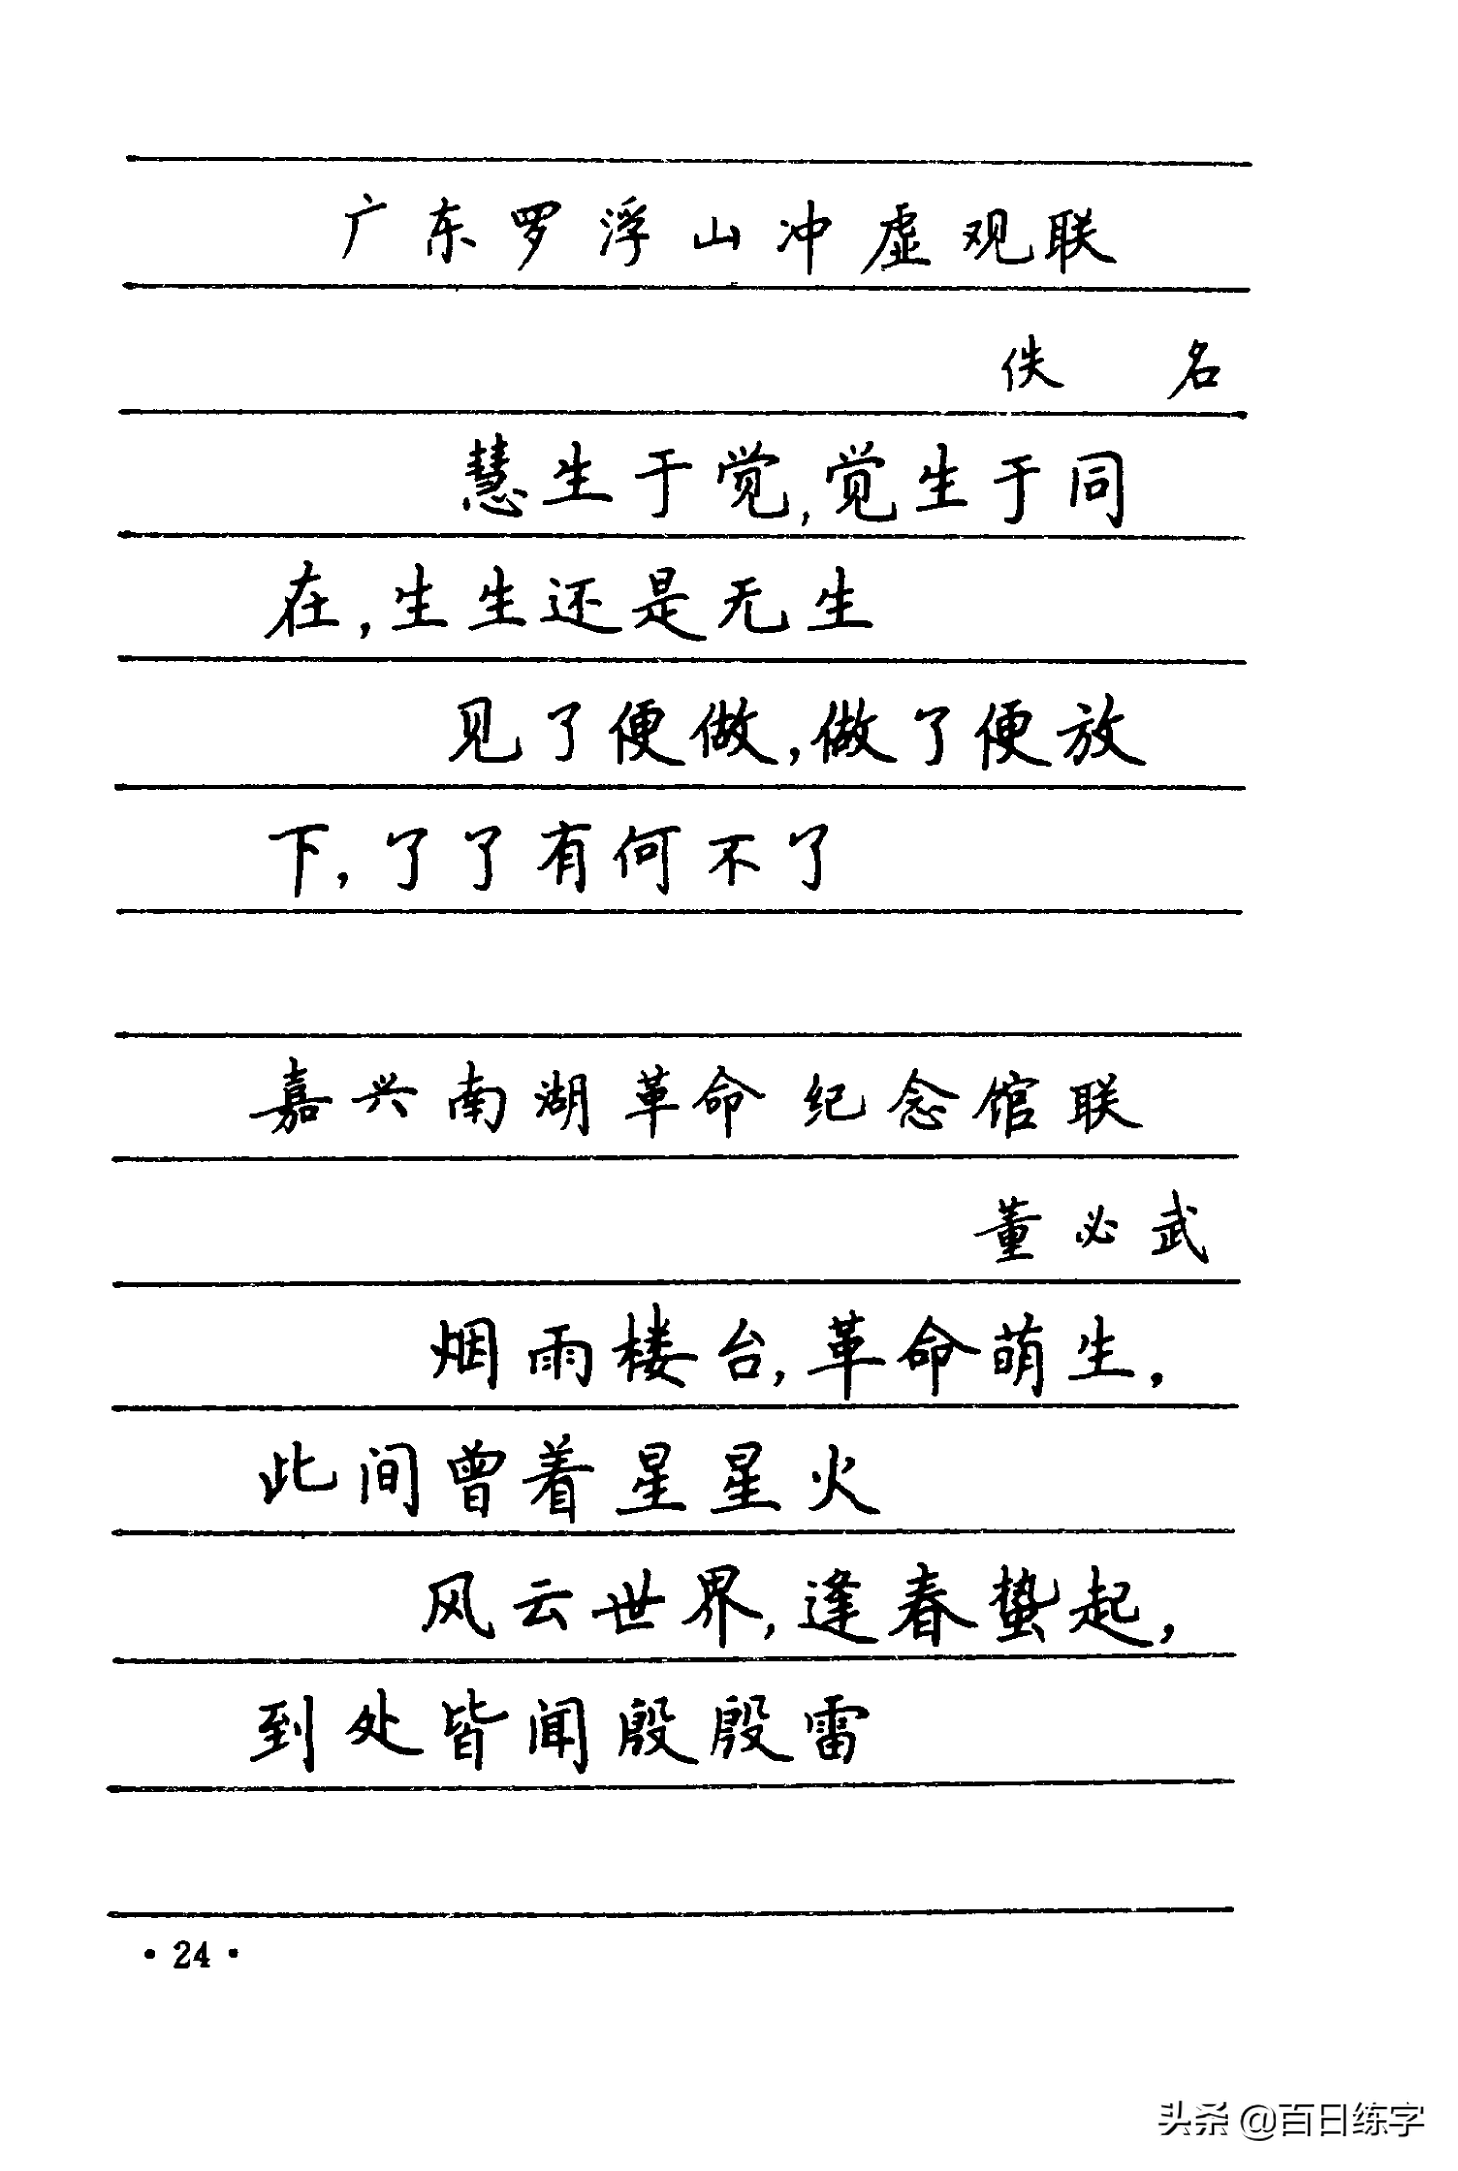 广东罗浮山冲虚观联
佚 名
慧生于觉,觉生于同
在,生生还是无生
见了便做,做了便放
下,了了有何不了
嘉兴南湖革命纪念馆联
董必武
烟雨楼台,革命萌生,
此间曾着星星火
风云世界,逢春蛰起,
到处皆闻殷殷雷
·24·
头条 @百日练字